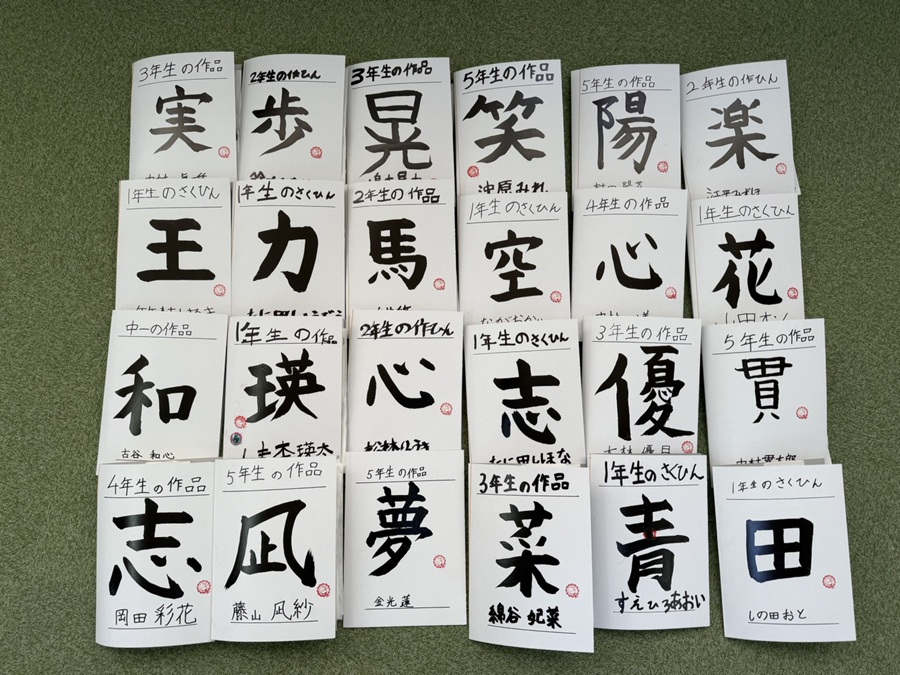 3年生の作品
実
2年生の作ひん
歩
3年生の作品
晃
5年生の作品
笑
沖原みれ
5年生の作品
陽
2年生の作ひん
楽
1年生のさくひん
王
1年生のさくひん
力
2年生の作品
馬
1年生のさくひん
空
4年生の作品
心
1年生のさくひん
花
中一の作品
和
古谷 和心
1年生の作品
瑛
2年生の作ひん
心
1年生のさくひん
志
3年生の作品
優
5年生の作品
貫
4年生の作品
志
岡田 彩花
5年生の作品
凪
藤山 凪紗
5年生の作品
夢
金光 蓮
3年生の作品
菜
綿谷 妃菜
1年生のさくひん
青
すえひろあおい
1年生のさくひん
田
しの田おと